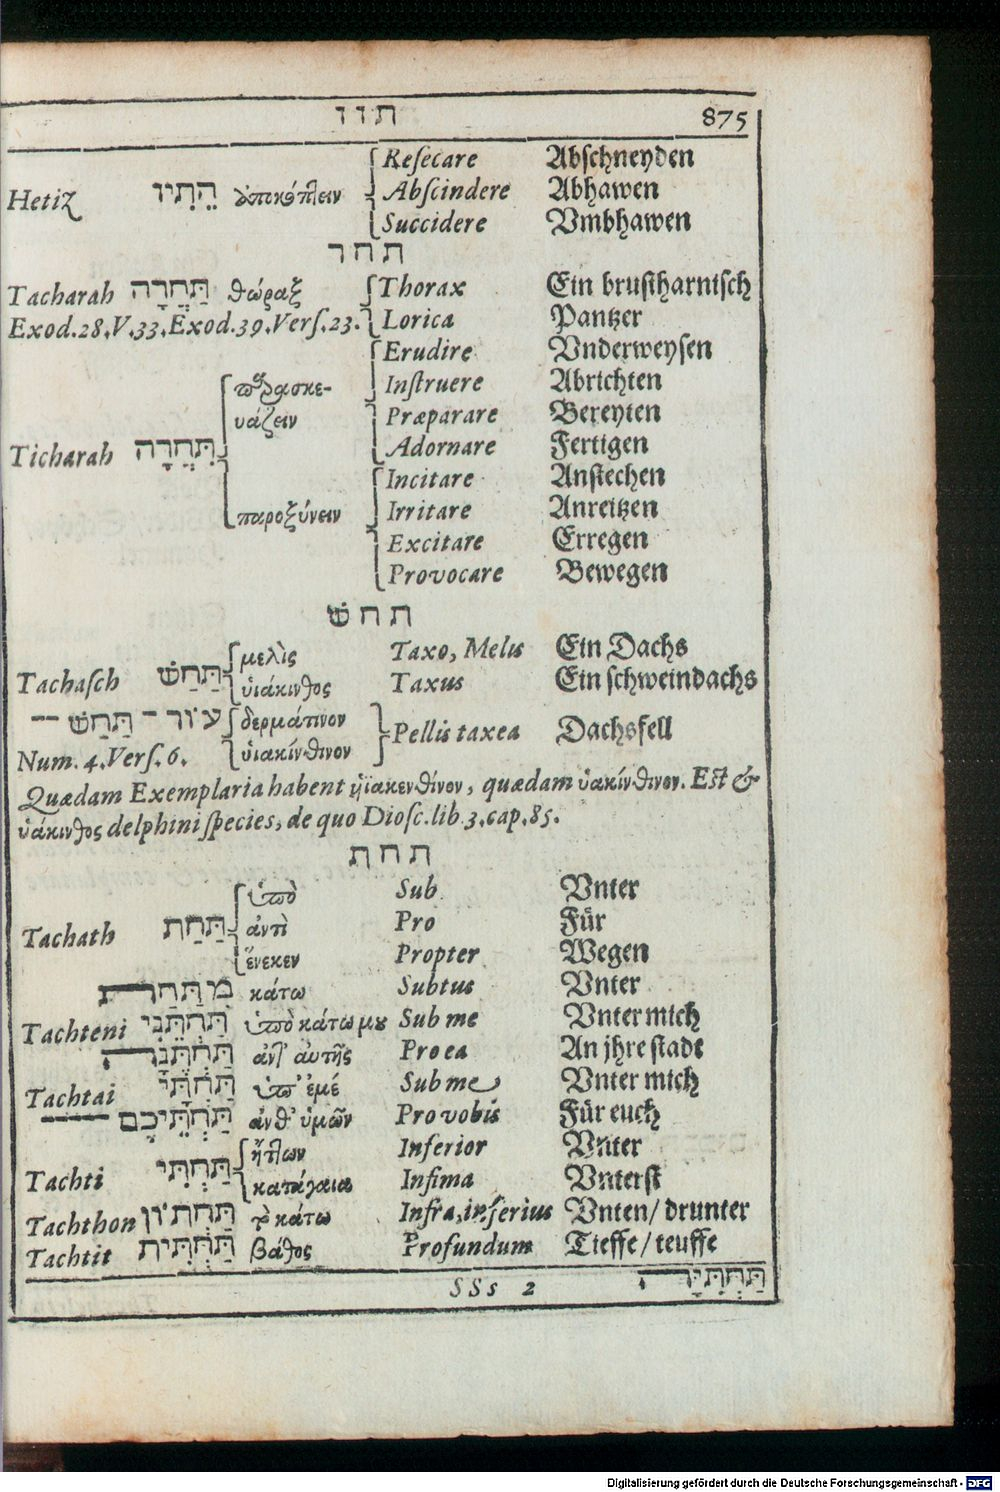 תוז 875
Resecare Abschneyden
Hetiz הֵתִיז ἀποκόπτειν Abscindere Abhawen
Succidere Vmbhawen
תחר
Tacharah תַּחֲרָה θώραξ Thorax Ein brustharnisch
Exod.28.V.33.Exod.39.Vers.23. Lorica Pantzer
Erudire Vnderweysen
παρασκε- Instruere Abrichten
υάζειν Præparare Bereyten
Ticharah תִּחֲרָה Adornare Fertigen
Incitare Anstechen
παροξύνειν Irritare Anreitzen
Excitare Erregen
Provocare Bewegen
תחשׁ
μελὶς Taxo, Melis Ein Dachs
Tachasch תַּחַשׁ ὑιάκινθος Taxus Ein schweindachs
עור־תַּחַשׁ δερμάτινον Pellis taxea Dachsfell
Num. 4. Vers. 6. ὑιακίνθινον
Quædam Exemplaria habent ὑϊακενθίνον, quædam ὑακίνθινον. Est &
ὑάκινθος delphini species, de quo Diosc. lib. 3. cap. 85.
תחת
ὑπὸ Sub Vnter
Tachath תַּחַת ἀντὶ Pro Für
ἕνεκεν Propter Wegen
מִתַּחַת κάτω Subtus Vnter
Tachteni תַּחְתֵּנִי ὑπὸ κάτω μου Sub me Vnter mich
תַּחְתֶּנָּה ἀντ' αὐτῆς Pro ea An jhre stadt
Tachtai תַּחְתָּי ὑπ' ἐμέ Sub me Vnter mich
תַּחְתֵּיכֶם ἀνθ' ὑμῶν Pro vobis Für euch
ἥττων Inferior Vnter
Tachti תַּחְתִּי κατάγαια Infima Vnterst
Tachthon תַּחְתּוֹן τὸ κάτω Infra, inferius Vnten/ drunter
Tachtit תַּחְתִּית βάθος Profundum Tieffe/ teuffe
SSs 2 תַּחְתִּיָּה
Digitalisierung gefördert durch die Deutsche Forschungsgemeinschaft - DFG